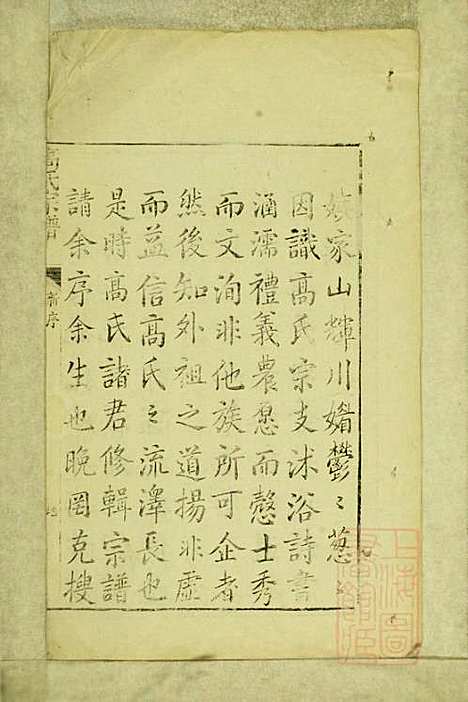 家山輝川媚鬱〻葱〻
因識高氏宗支沐浴詩書
涵濡禮義農愿而慤士秀
而文洵非他族所可企者
然後知外祖之道揚非虛
而益信高氏之流澤長也
是時高氏諸君修輯宗譜
請余序余生也晚罔克搜
高氏宗譜
序